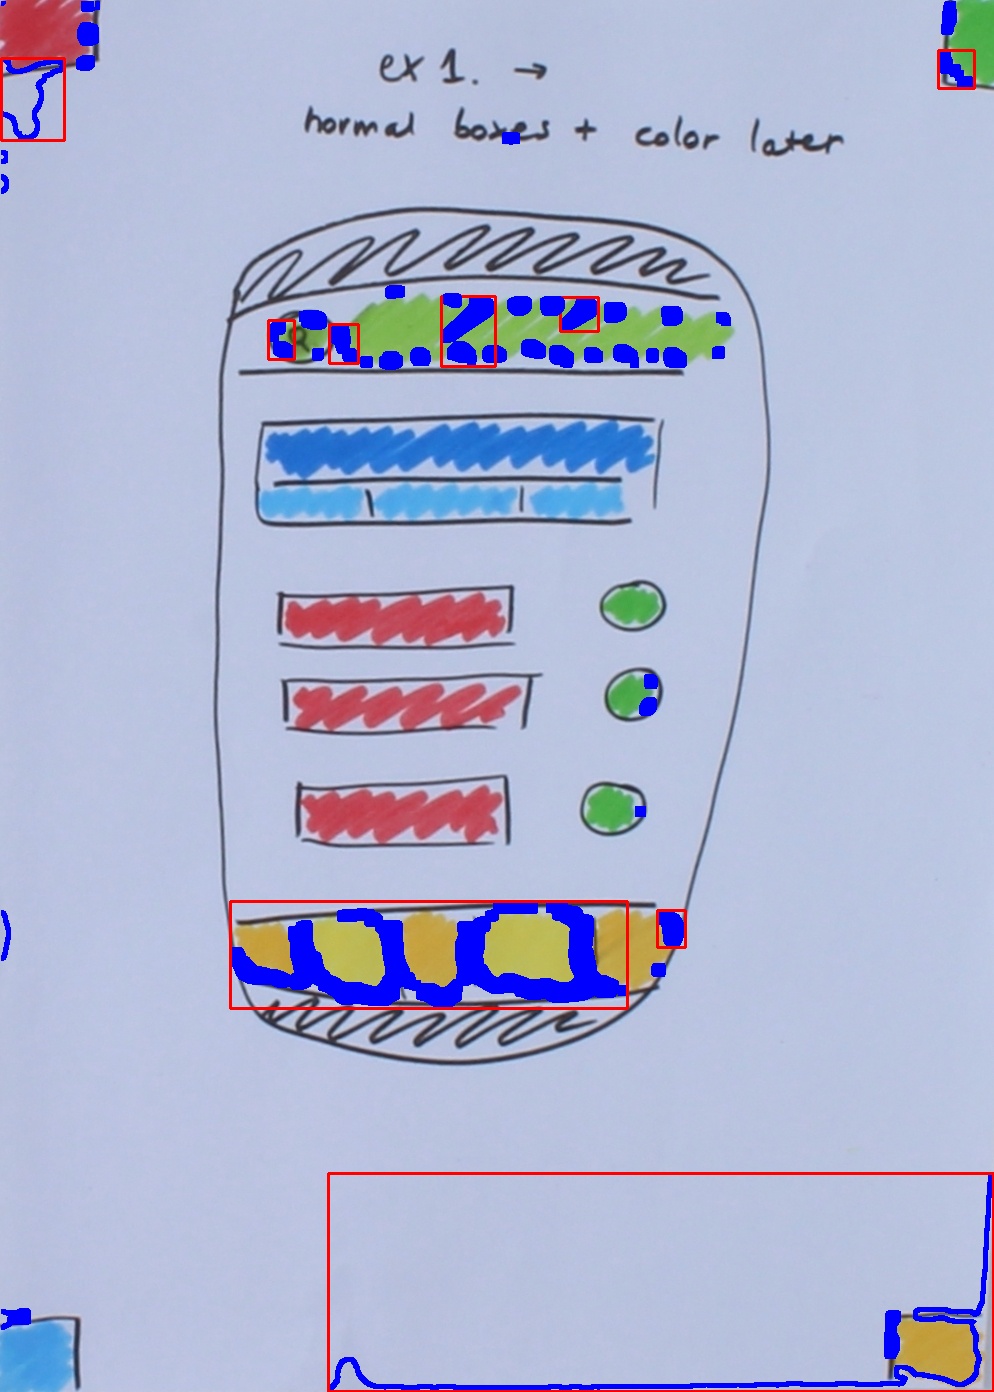 ex 1. →
normal boxes + color later